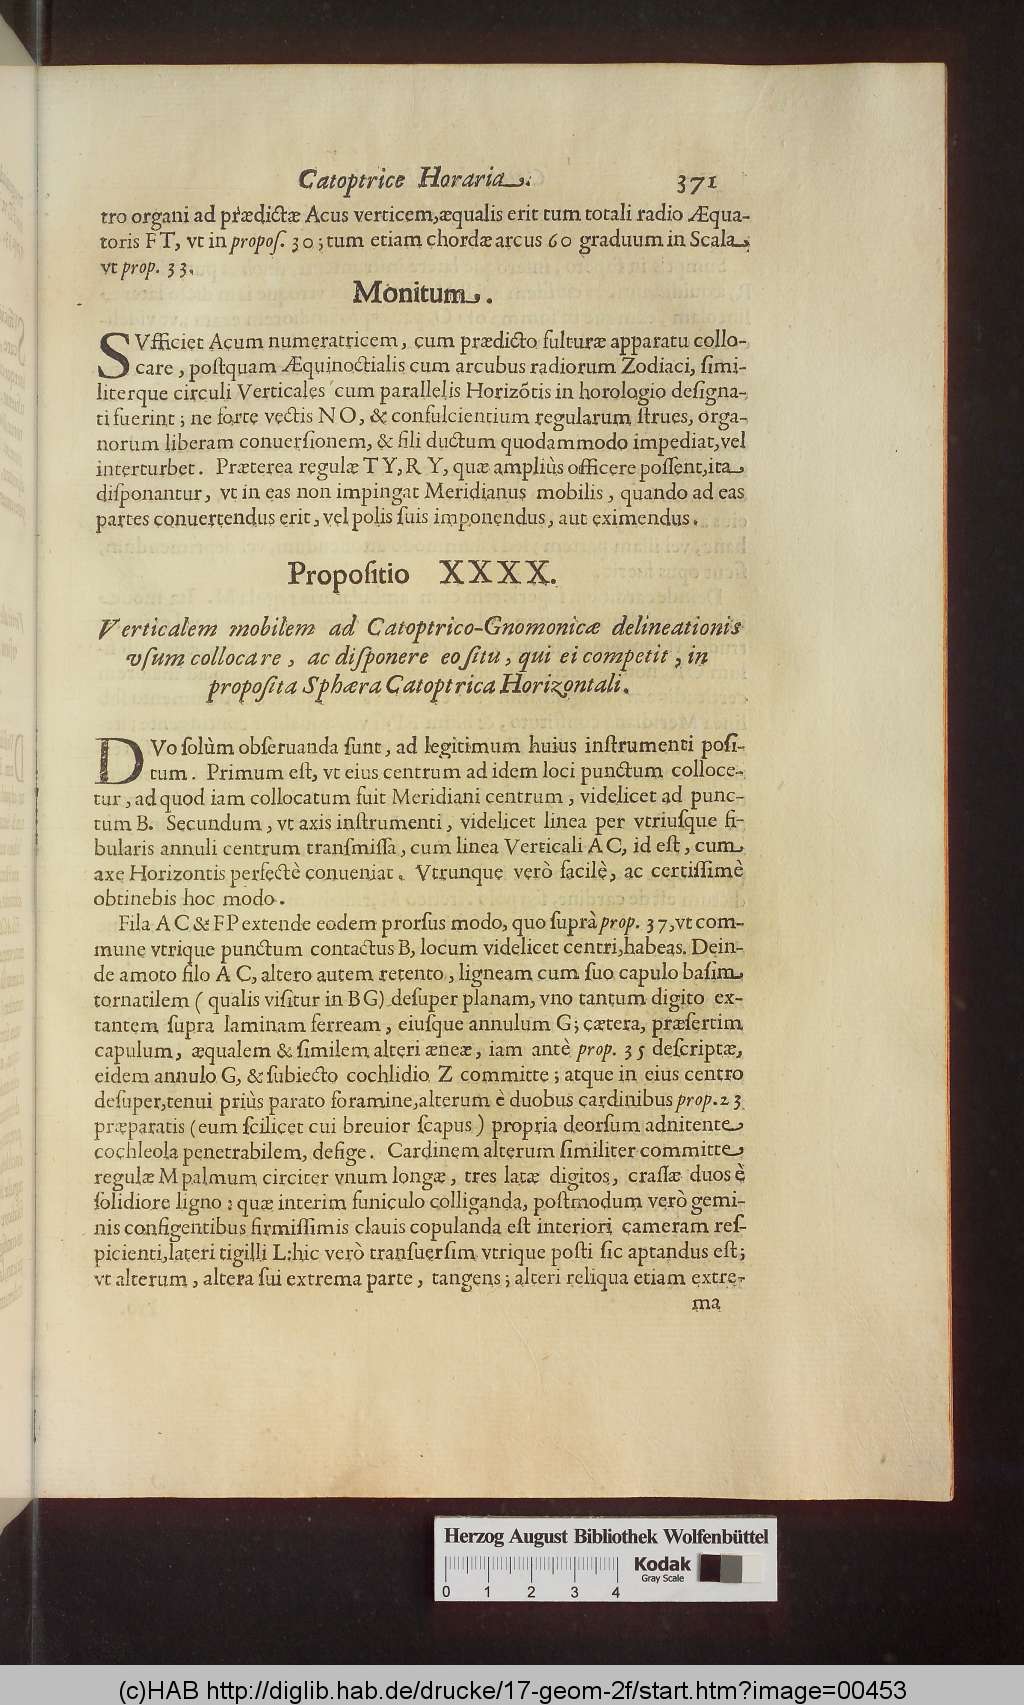 Catoptrice Horaria. 371
tro organi ad prædictæ Acus verticem, æqualis erit tum totali radio Æqua-
toris FT, vt in propos. 30; tum etiam chordæ arcus 60 graduum in Scala,
vt prop. 33.
Monitum.
SVfficiet Acum numeratricem, cum prædicto fulturæ apparatu collo-
care, postquam Æquinoctialis cum arcubus radiorum Zodiaci, simi-
literque circuli Verticales cum parallelis Horizõtis in horologio designa-
ti fuerint; ne forte vectis NO, & confulcientium regularum strues, orga-
norum liberam conuersionem, & fili ductum quodammodo impediat, vel
interturbet. Præterea regulæ TY, RY, quæ ampliùs officere possent, ita
disponantur, vt in eas non impingat Meridianus mobilis, quando ad eas
partes conuertendus erit, vel polis suis imponendus, aut eximendus.
Propositio XXXX.
Verticalem mobilem ad Catoptrico-Gnomonicæ delineationis
vsum collocare, ac disponere eo situ, qui ei competit, in
proposita Sphæra Catoptrica Horizontali.
DVo solùm obseruanda sunt, ad legitimum huius instrumenti posi-
tum. Primum est, vt eius centrum ad idem loci punctum colloce-
tur, ad quod iam collocatum fuit Meridiani centrum, videlicet ad punc-
tum B. Secundum, vt axis instrumenti, videlicet linea per vtriusque fi-
bularis annuli centrum transmissa, cum linea Verticali AC, id est, cum
axe Horizontis perfectè conueniat. Vtrunque verò facilè, ac certissimè
obtinebis hoc modo.
Fila AC & FP extende eodem prorsus modo, quo suprà prop. 37, vt com-
mune vtrique punctum contactus B, locum videlicet centri, habeas. Dein-
de amoto filo AC, altero autem retento, ligneam cum suo capulo basim
tornatilem (qualis visitur in BG) desuper planam, vno tantum digito ex-
tantem supra laminam ferream, eiusque annulum G; cætera, præsertim
capulum, æqualem & similem alteri æneæ, iam antè prop. 35 descriptæ,
eidem annulo G, & subiecto cochlidio Z committe; atque in eius centro
desuper, tenui priùs parato foramine, alterum è duobus cardinibus prop. 23
præparatis (eum scilicet cui breuior scapus) propria deorsum adnitente
cochleola penetrabilem, defige. Cardinem alterum similiter committe
regulæ M palmum circiter vnum longæ, tres latæ digitos, crassæ duos è
solidiore ligno: quæ interim funiculo colliganda, postmodum verò gemi-
nis configentibus firmissimis clauis copulanda est interiori cameram res-
picienti, lateri tigilli L: hic verò transuersim vtrique posti sic aptandus est;
vt alterum, altera sui extrema parte, tangens; alteri reliqua etiam extre-
ma
Herzog August Bibliothek Wolfenbüttel
Kodak
Gray Scale
0 1 2 3 4
(c)HAB http://diglib.hab.de/drucke/17-geom-2f/start.htm?image=00453